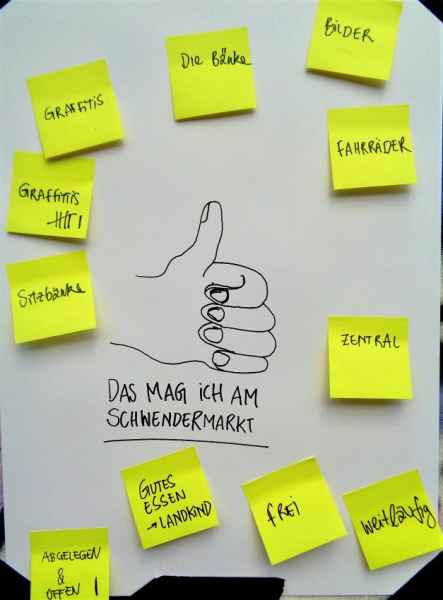 Die Bänke
BILDER
GRAFFITIS
FAHRRÄDER
GRAFFITIS
Sitzbänke
ZENTRAL
DAS MAG ICH AM
SCHWENDERMARKT
GUTES
ESSEN
→ LANDKIND
FREI
weitläufig
ABGELEGEN
&
OFFEN